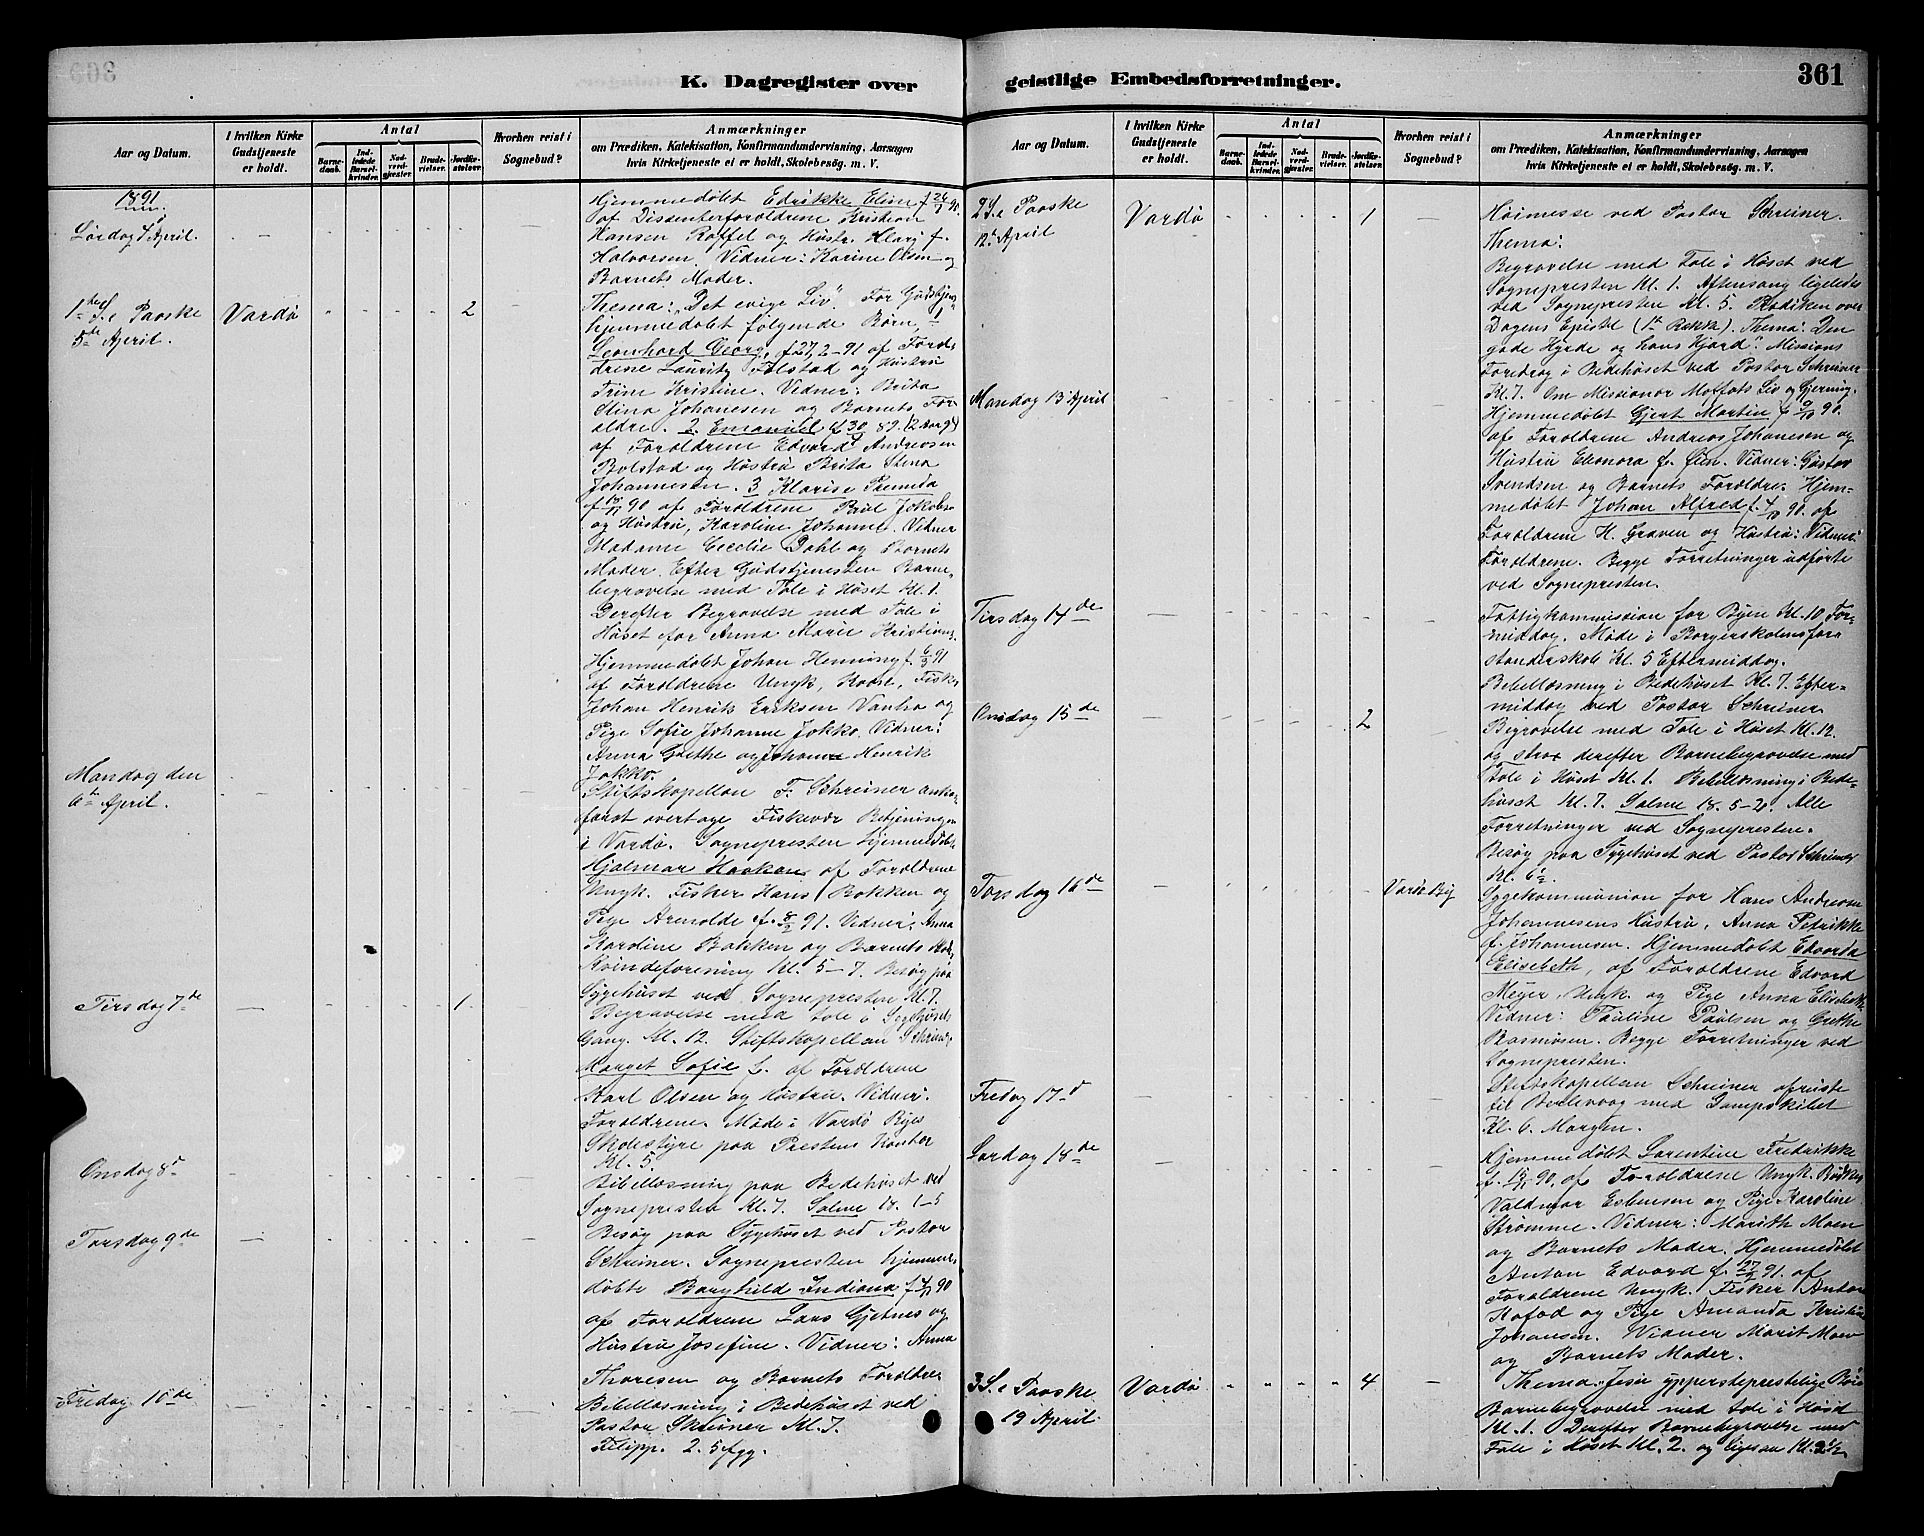 K. Dagregister over
Aar og Datum.
I hvilken Kirke
Gudstjeneste
er holdt.
Antal
Barne-
daab.
Ind-
ledede
Barsel-
kvinder.
Nad-
verd-
gjester.
Brude-
vielser.
Jordfæ-
stelser.
Hvorhen reist i
Sognebud?
Anmærkninger
om Prædiken, Katekisation, Konfirmandundervisning, Aarsagen
hvis Kirketjeneste ei er holdt, Skolebesøg. m. V.
1891
Lørdag 4 April.
Hjemmedøbt Edrikke Elise f 24/1 90.
af Dissenterforældrene Kristian
Hansen Roffel og Hustr. Klarg f.
Halvorsen. Vidner: Karine Olsen og
Barnets Moder.
1ste S. e Paaske
5te April.
Vardø
2
Thema: "Det evige Liv". For Gudstjen.
hjemmedøbt følgende Børn, 1
Leonhard Georg, f 27/2-91 af Foræl-
drene Lauritz Folstad og Hustru
Trine Kristine. Vidner: Brita
Stina Johanesen og Barnets For-
ældre. 2. Emanuel f 30 89. (2 Aar gl)
af Forældrene Edvard Andreasen
Bolstad og Hustru Brita Stina
Johannesen. 3 Klarise
90 af Forældrene
og Hustru, Karoline Johanne. Vidner
Madame Cecilie Dahl og Barnets
Moder. Efter Gudstjenesten Barne-
begravelse med Tale i Huset Kl. 1.
Derefter Begravelse med Tale i
Huset for Anna Marie Kristians
Hjemmedøbt Johan Henning f. 6/3 91
af Forældrene Ungk, Fisk.
Johan Henrik Eriksen Vanha og
Pige Sofie Johanne Jokko. Vidner:
Anna Grethe og Johan Henrik
Jokko.
Mandag den
6te April.
Stiftskapellan F. Schreiner anko-
forat overtage Fiskevær Betjeningen
i Vardø. Sognepresten hjemmedøbt
Hjalmar Haakon af Forældrene
Ungk. Fisker Hans Bakken og
Pige Arnolde f. 8/2 91. Vidner: Anna
Karoline Bakken og Barnets Mod.
Kvindeforening Kl. 5-7. Besøg paa
Sygehuset ved Sognepresten Kl. 7.
Tirsdag 7de
1.
Begravelse med Tale i Sygehusets
Gang. Kl. 12. Stiftskapellan Schreiner
Marget Sofie f. af Forældrene
Karl Olsen og Hustru. Vidner:
Forældrene. Møde i Vardø Byes
Skolestyre paa Prestens Kontor
Kl. 5.
Onsdag 8de
Bibellæsning paa Bedehuset ved
Sognepresten Kl. 7. Salme 18. 1-5
Torsdag 9de
Besøg paa Sygehuset ved Pastor
Schreiner. Sognepresten hjemme-
døbte Borghild Indiana 90
af Forældrene Lars Gjetnes og
Hustru Josefine. Vidner: Anna
Thoresen og Barnets Forældre
Fredag 10de
Bibellæsning i Bedehuset ved
Pastor Schreiner Kl. 7.
Filipp. 2. 5 fgg.
geistlige Embedsforretninger.
361
Aar og Datum.
I hvilken Kirke
Gudstjeneste
er holdt.
Antal
Barne-
daab.
Ind-
ledede
Barsel-
kvinder.
Nad-
verd-
gjester.
Brude-
vielser.
Jordfæ-
stelser.
Hvorhen reist i
Sognebud?
Anmærkninger
om Prædiken, Katekisation, Konfirmandundervisning, Aarsagen
hvis Kirketjeneste ei er holdt, Skolebesøg. m. V.
2 S. e Paaske
12te April
Vardø
1
Høimesse ved Pastor Schreiner.
Thema:
Begravelse med Tale i Huset ved
Sognepresten Kl. 1. Aftensang ligeledes
ved Sognepresten Kl. 5. Prædiken over
Dagens Epistel (1te Række). Thema: "Den
gode Hyrde og hans Hjord". Missions
Foredrag i Bedehuset ved Pastor Schreiner
Kl. 7. Om Missionær Moffats Liv og Gjerning.
Mandag 13 April
Hjemmedøbt Gjert Martin f 90.
af Forældrene Andreas Johanesen og
Hustru Eleonora f. Olsen. Vidner: Gustav
Svendsen og Barnets Forældre. Hjem-
medøbt Johan Alfred f. 90. af
Forældrene H. Graven og Hustru: Vidner:
Forældrene. Begge Forretninger udførte
ved Sognepresten.
Tirsdag 14de
Fattigkommission for Byen Kl. 10 For-
middag. Møde i Borgerskolens for-
standerskab Kl. 5 Eftermiddag.
Bibellæsning i Bedehuset Kl. 7. Efter-
middag ved Pastor Schreiner
Onsdag 15de
2
Begravelse med Tale i Huset Kl. 12.
og strax derefter Barnebegravelse med
Tale i Huset Kl. 1. Bibellæsning i Bede-
huset Kl. 7. Salme 18. 5-20. Alle
Forretninger ved Sognepresten.
Besøg paa Sygehuset ved Pastor Schreiner
Kl. 6 1/2.
Torsdag 16de
Vardø By
Sygekommunion for Hans Andreas
Johannesens Hustru, Anna Petrikke
f. Johannesen. Hjemmedøbt Edvarda
Elisebeth, af Forældrene Edvard
Meyer, Ungk. og Pige Anna Elisebeth
Vidner: Pauline Paulsen og Grethe
Rasmusen. Begge Forretninger ved
Sognepresten.
Fredag 17de
Stiftskapellan Schreiner afreiste
til Berlevaag med Dampskibet
Kl. 6. Morgen.
Lørdag 18de
Hjemmedøbt Sarentine Fredrikke
f. 90, af Forældrene Ungk.
Valdmar Esbensen og Pige Karoline
Strømme. Vidner: Marith Moen
og Barnets Moder. Hjemmedøbt
Anton Edvard f. 27/2 91. af
Forældrene Ungk. Fisker Anton
Hofod og Pige Amanda Kristine
Johansen. Vidner Marit Moen
og Barnets Moder.
3 S. e Paaske
19 April.
Vardø
4
Thema. Jesu ypperstepræstelige Bøn
Barnebegravelse med Tale i Huset
Kl. 1. Derefter Barnebegravelse med
Tale i Huset Kl. 2. og ligesaa Kl. 2 1/2